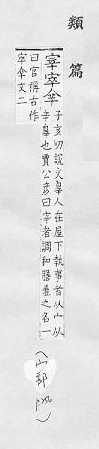 類篇
宰
子亥切說文辠人在屋下執事者从宀从
辛辠也賈公彥曰宰者調和膳羞之名一
曰官稱古作
文二
(宀部